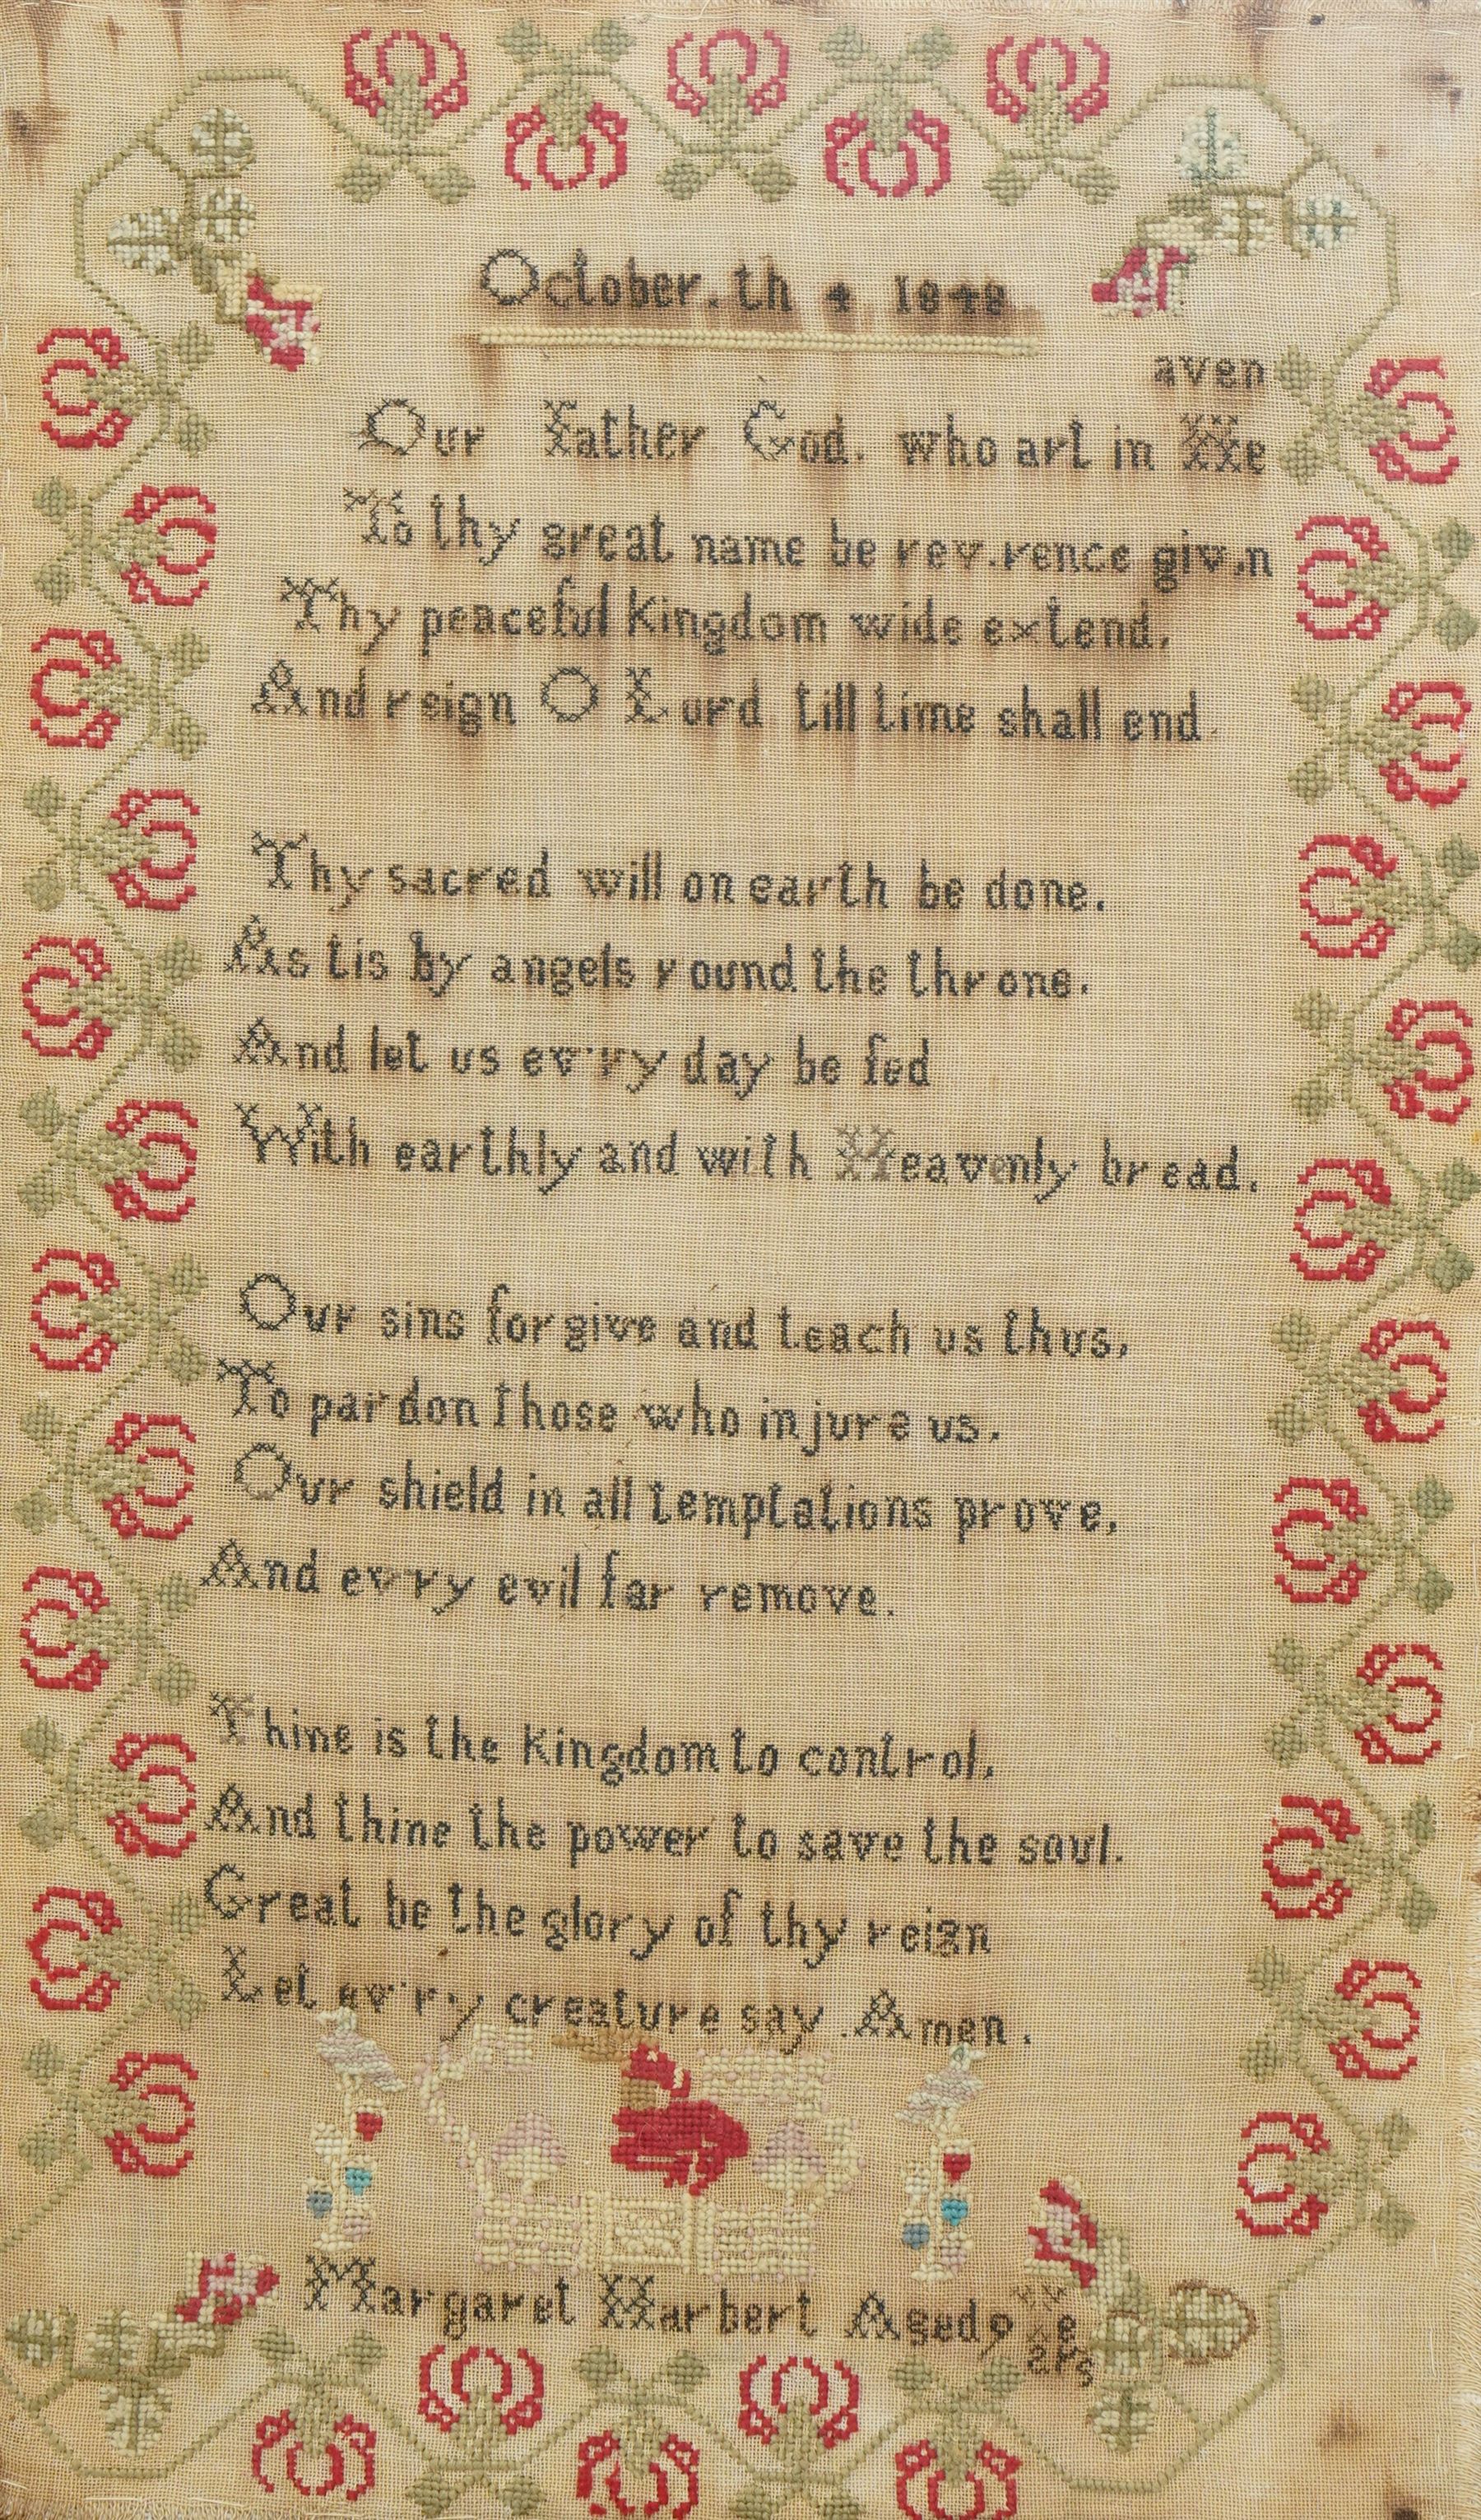 October. th 4 1848
Our Father God. who art in Heaven
To thy great name be rev.rence giv.n
Thy peaceful Kingdom wide extend.
And reign O Lord till time shall end
Thy sacred will on earth be done.
As tis by angels round the throne.
And let us ev'ry day be fed
With earthly and with Heavenly bread.
Our sins forgive and teach us thus,
To pardon those who injure us.
Our shield in all temptations prove,
And evry evil far remove.
Thine is the Kingdom to control,
And thine the power to save the soul.
Great be the glory of thy reign
Let ev'ry creature say. Amen.
Margaret Harbert Aged 9 Years